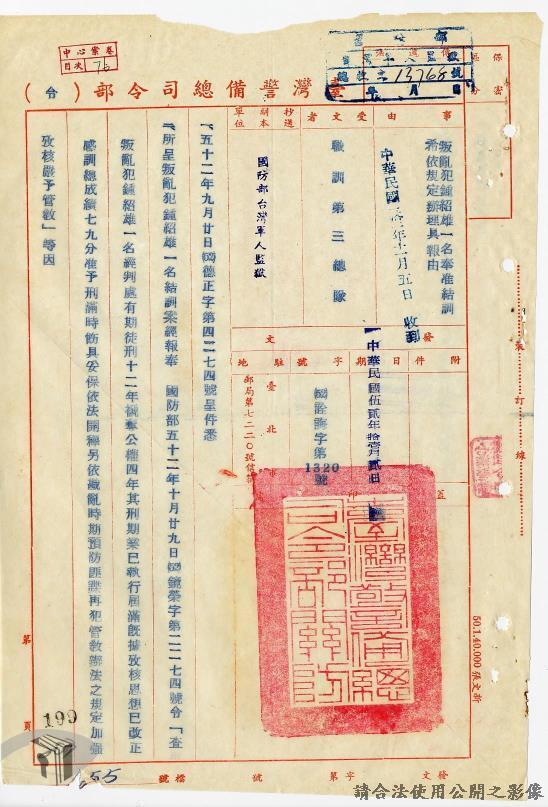 中心案卷
目次 76
13768號
年 月 日
保密區分
臺灣警備總司令部（令）
事由
叛亂犯鍾紹雄一名奉准結訓
希依規定辦理具報由
受文者
職訓第三總隊
中華民國 年十一月五日 收到
抄送副本單位
國防部台灣軍人監獄
發文
附件
日期
中華民國伍貳年拾壹月貳日
字號
字第1320號
駐地
臺北市
郵局第七二二〇號信箱
蓋印
臺灣警備總司令部關防
一、五十二年九月廿日德正字第四二七四號呈件悉
二、所呈叛亂犯鍾紹雄一名結訓案經報奉 國防部五十二年十月廿九日鏡榮字第二二七四號令「查
叛亂犯鍾紹雄一名經判處有期徒刑十二年褫奪公權四年其刑期業已執行屆滿既據攷核思想已改正
感訓總成績七九分准予刑滿時飭具妥保依法開釋另依戡亂時期預防匪諜再犯管教辦法之規定加強
攷核嚴予管教」等因
裝訂線
50.1.40.000 張文新
第 頁
199
655
發文 字第 號 檔號
請合法使用公開之影像